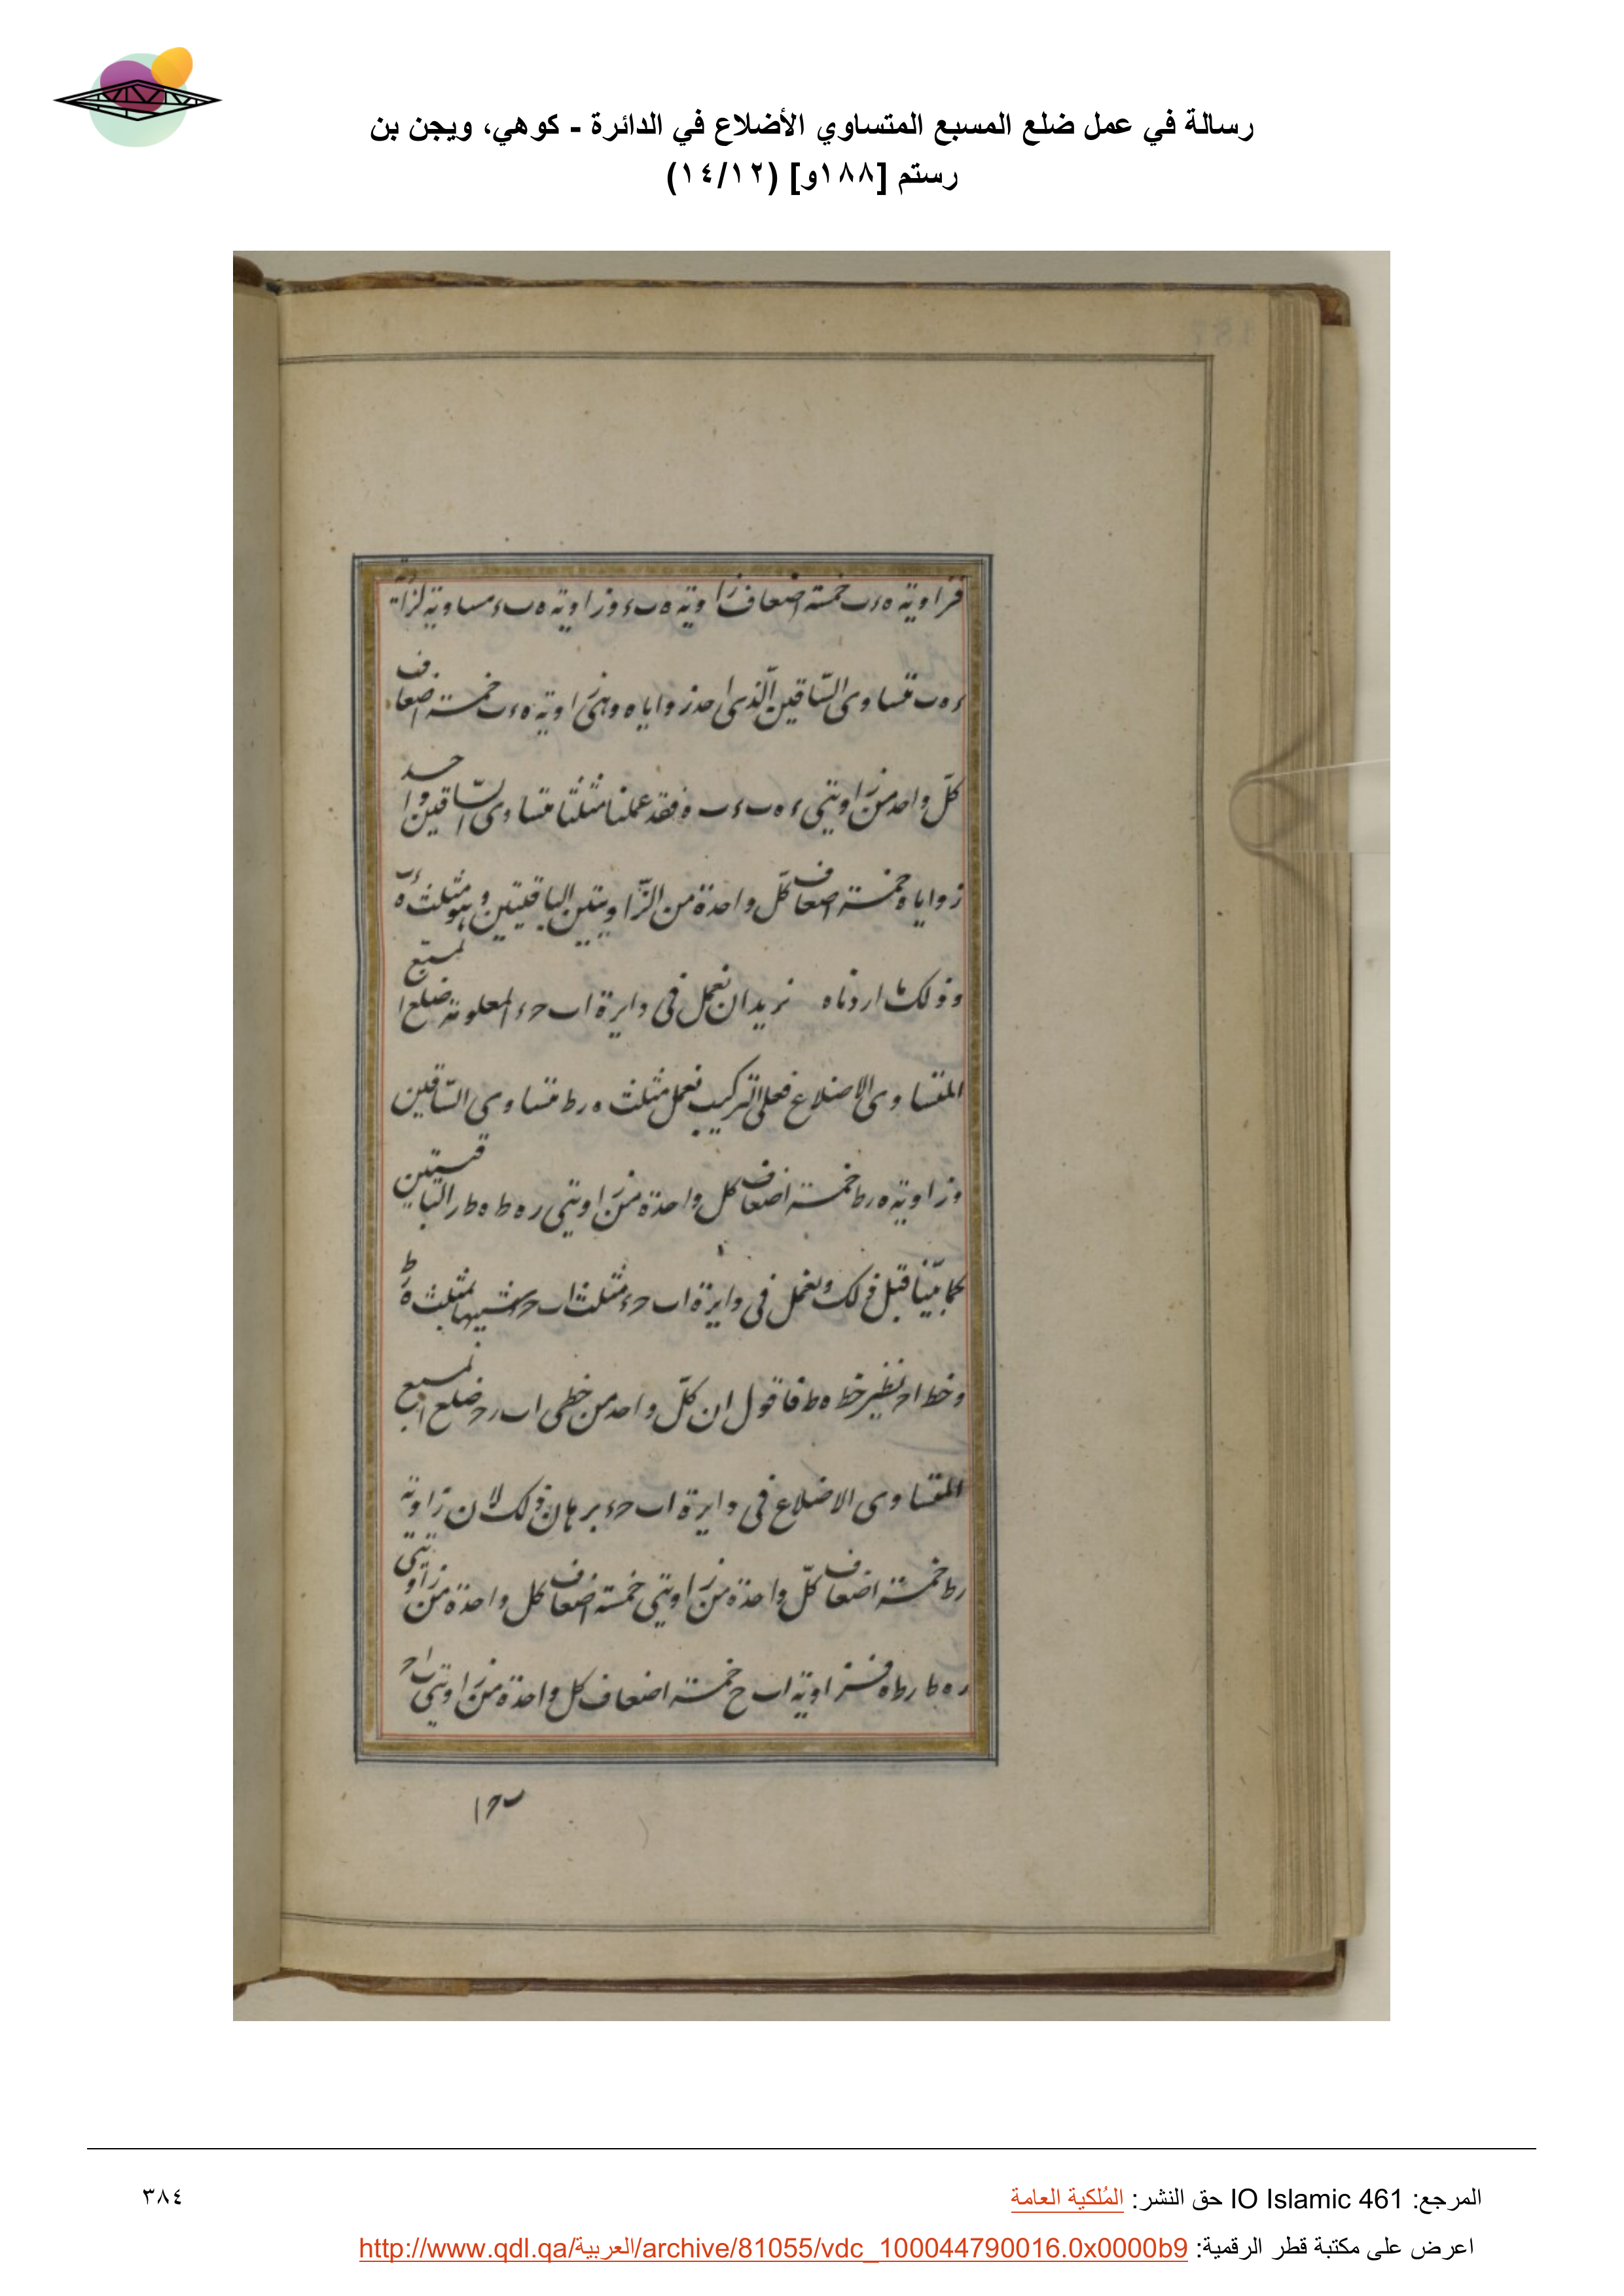 رسالة في عمل ضلع المسبع المتساوي الأضلاع في الدائرة - كوهي، ويجن بن
رستم [١٨٨و] (١٤/١٢)
فزاوية هءب خمسة اضعاف زاوية ه بء وزاوية ه بء مساوية لزاية
ء ه ب متساوى الساقين الذى احد زواياه وهى زاوية ه ءب خمسة اضعاف
كل واحد من زاويتى ء ه ب ء ب ه فقد عملنا مثلثا متساوى الساقين واحد
زواياه خمسة اضعاف كل واحدة من الزاويتين الباقيتين وهو مثلث ء ه ب
وذلك ما اردناه نريد ان نعمل فى دايرة اب حء المعلومة ضلع المسبع
المتساوى الاضلاع فعلى التركيب نعمل مثلث ه رط متساوى الساقين
وزاوية ه رط خمسة اضعاف كل واحدة من زاويتى ر ه ط ه ط ر الباقيتين
كما بينا قبل ذلك ونعمل فى دايرة اب حء مثلث اب ح شبيها بمثلث ه رط
وخط اح نظير خط ه ط فاقول ان كل واحد من خطى اب رح ضلع المسبع
المتساوى الاضلاع فى دايرة اب حء برهان ذلك لان زاوية
رط خمسة اضعاف كل واحدة من زاويتى خمسة اضعاف كل واحدة من زاويتى
ر ه ط ر ط ه فزاوية اب ح خمسة اضعاف كل واحدة من زاويتى ب اح
ب ح ا
المرجع: IO Islamic 461 حق النشر: المُلكية العامة
٣٨٤
اعرض على مكتبة قطر الرقمية: http://www.qdl.qa/العربية/archive/81055/vdc_100044790016.0x0000b9